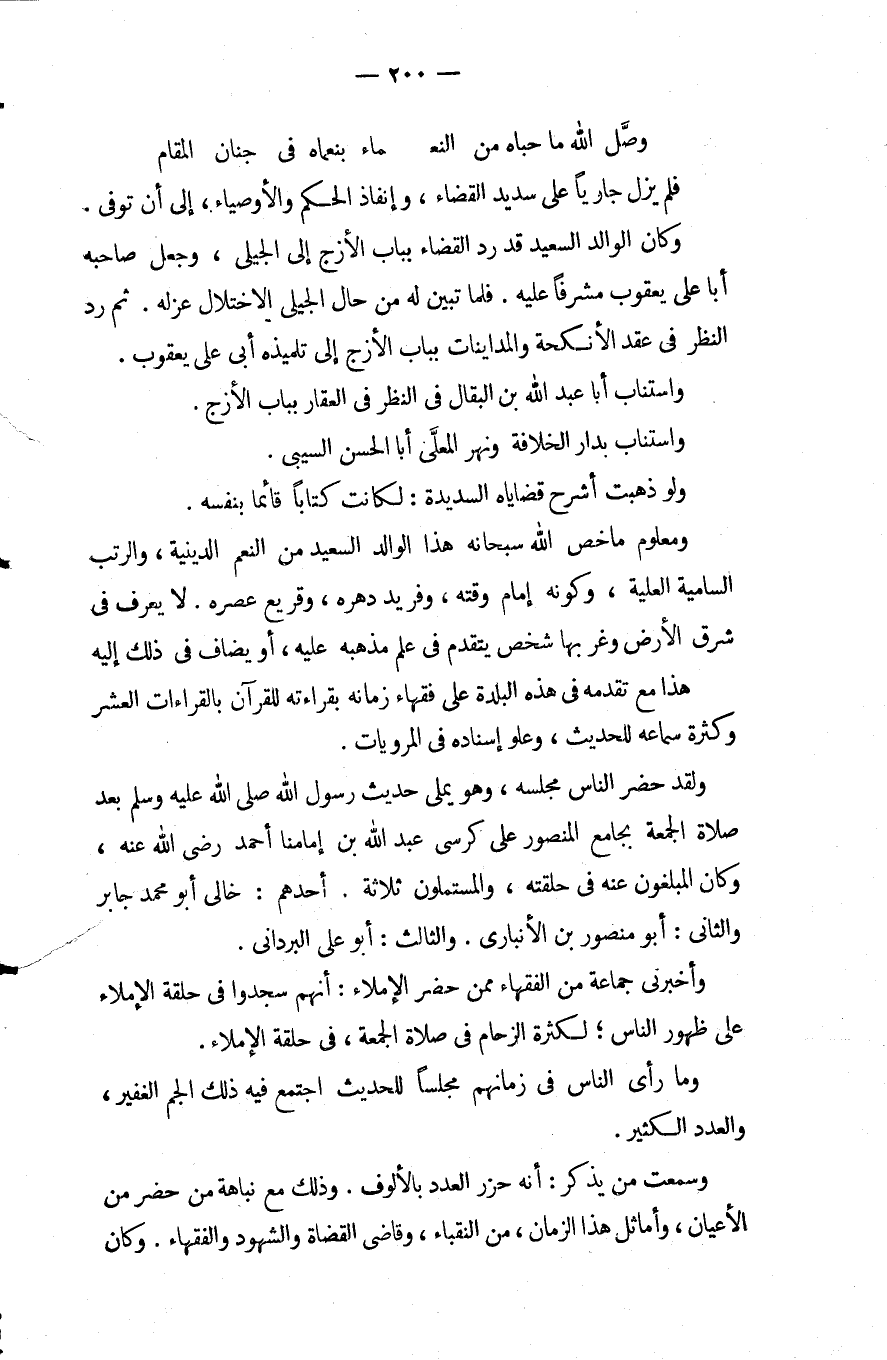 — ٢٠٠ —
وصَّل الله ما حباه من النعـ ـماء بنعماه فى جنان المقام
فلم يزل جارياً على سديد القضاء ، وإنفاذ الحكم والأوصياء ، إلى أن توفى .
وكان الوالد السعيد قد رد القضاء بباب الأزج إلى الجيلى ، وجعل صاحبه
أبا على يعقوب مشرفاً عليه . فلما تبين له من حال الجيلى الاختلال عزله . ثم رد
النظر فى عقد الأنكحة والمداينات بباب الأزج إلى تلميذه أبى على يعقوب .
واستناب أبا عبد الله بن البقال فى النظر فى العقار بباب الأزج .
واستناب بدار الخلافة ونهر المعلَّى أبا الحسن السيبى .
ولو ذهبت أشرح قضاياه السديدة : لكانت كتاباً قائما بنفسه .
ومعلوم ماخص الله سبحانه هذا الوالد السعيد من النعم الدينية ، والرتب
السامية العلية ، وكونه إمام وقته ، وفريد دهره ، وقريع عصره . لا يعرف فى
شرق الأرض وغربها شخص يتقدم فى علم مذهبه عليه ، أو يضاف فى ذلك إليه
هذا مع تقدمه فى هذه البلدة على فقهاء زمانه بقراءته للقرآن بالقراءات العشر
وكثرة سماعه للحديث ، وعلو إسناده فى المرويات .
ولقد حضر الناس مجلسه ، وهو يملى حديث رسول الله صلى الله عليه وسلم بعد
صلاة الجمعة بجامع المنصور على كرسى عبد الله بن إمامنا أحمد رضى الله عنه ،
وكان المبلغون عنه فى حلقته ، والمستملون ثلاثة . أحدهم : خالى أبو محمد جابر
والثانى : أبو منصور بن الأنبارى . والثالث : أبو على البردانى .
وأخبرنى جماعة من الفقهاء ممن حضر الإملاء : أنهم سجدوا فى حلقة الإملاء
على ظهور الناس ؛ لكثرة الزحام فى صلاة الجمعة ، فى حلقة الإملاء .
وما رأى الناس فى زمانهم مجلساً للحديث اجتمع فيه ذلك الجم الغفير ،
والعدد الكثير .
وسمعت من يذكر : أنه حزر العدد بالألوف . وذلك مع نباهة من حضر من
الأعيان ، وأماثل هذا الزمان ، من النقباء ، وقاضى القضاة والشهود والفقهاء . وكان